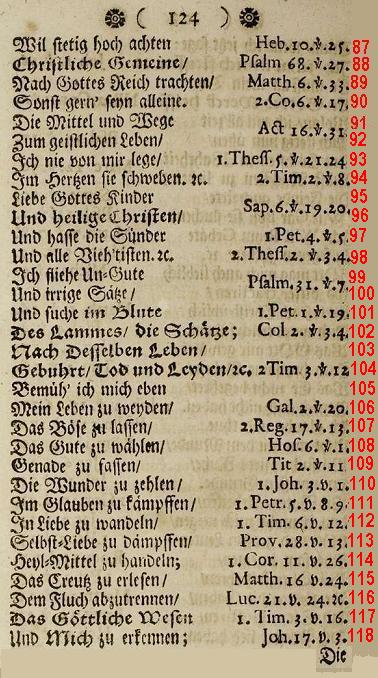 ❁ ( 124 ) ❁
Wil stetig hoch achten Heb.10.v.25. 87
Christliche Gemeine/ Psalm 68.v.27. 88
Nach Gottes Reich trachten/ Matth.6.v.33. 89
Sonst gern' seyn alleine. 2.Co.6.v.17. 90
Die Mittel und Wege 91
Act 16.v.31.
Zum geistlichen Leben/ 92
Ich nie von mir lege/ 1.Thess.5.v.21.24 93
Im Hertzen sie schweben. ꝛc. 2.Tim.2.v.8. 94
Liebe Gottes Kinder 95
Sap.6.v.19.20.
Und heilige Christen/ 96
Und hasse die Sünder 1.Pet.4.v.5. 97
Und alle Vieh'tisten. ꝛc. 2.Thess.2.v.3.4. 98
Ich fliehe Un-Gute 99
Psalm.31.v.7.
Und irrige Sätze/ 100
Und suche im Blute 1.Pet.1.v.19. 101
Des Lammes/ die Schätze; Col 2.v.3.4. 102
Nach Desselben Leben/ 103
Gebuhrt/ Tod und Leyden/ꝛc. 2Tim.3.v.12 104
Bemüh' ich mich eben 105
Mein Leben zu weyden/ Gal.2.v.20. 106
Das Böse zu lassen/ 2.Reg.17.v.13. 107
Das Gute zu wählen/ Hos.6.v.1. 108
Genade zu fassen/ Tit 2.v.11 109
Die Wunder zu zehlen/ 1.Joh.3.v.1. 110
Im Glauben zu kämpffen/ 1.Petr.5.v.8.9. 111
In Liebe zu wandeln/ 1.Tim.6.v.12. 112
Selbst-Liebe zu dämpffen/ Prov.28.v.13. 113
Heyl-Mittel zu handeln; 1.Cor.11.v.26. 114
Das Creutz zu erlesen/ Matth.16 v.24. 115
Dem Fluch abzutrennen/ Luc.21.v.24.ꝛc. 116
Das Göttliche Wesen 1.Tim.3.v.16. 117
Und Mich zu erkennen; Joh.17.v.3. 118
Die